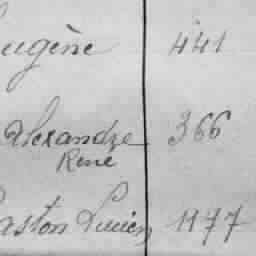 Eugène 441
Alexandre 366
René
Gaston Lucien 1177